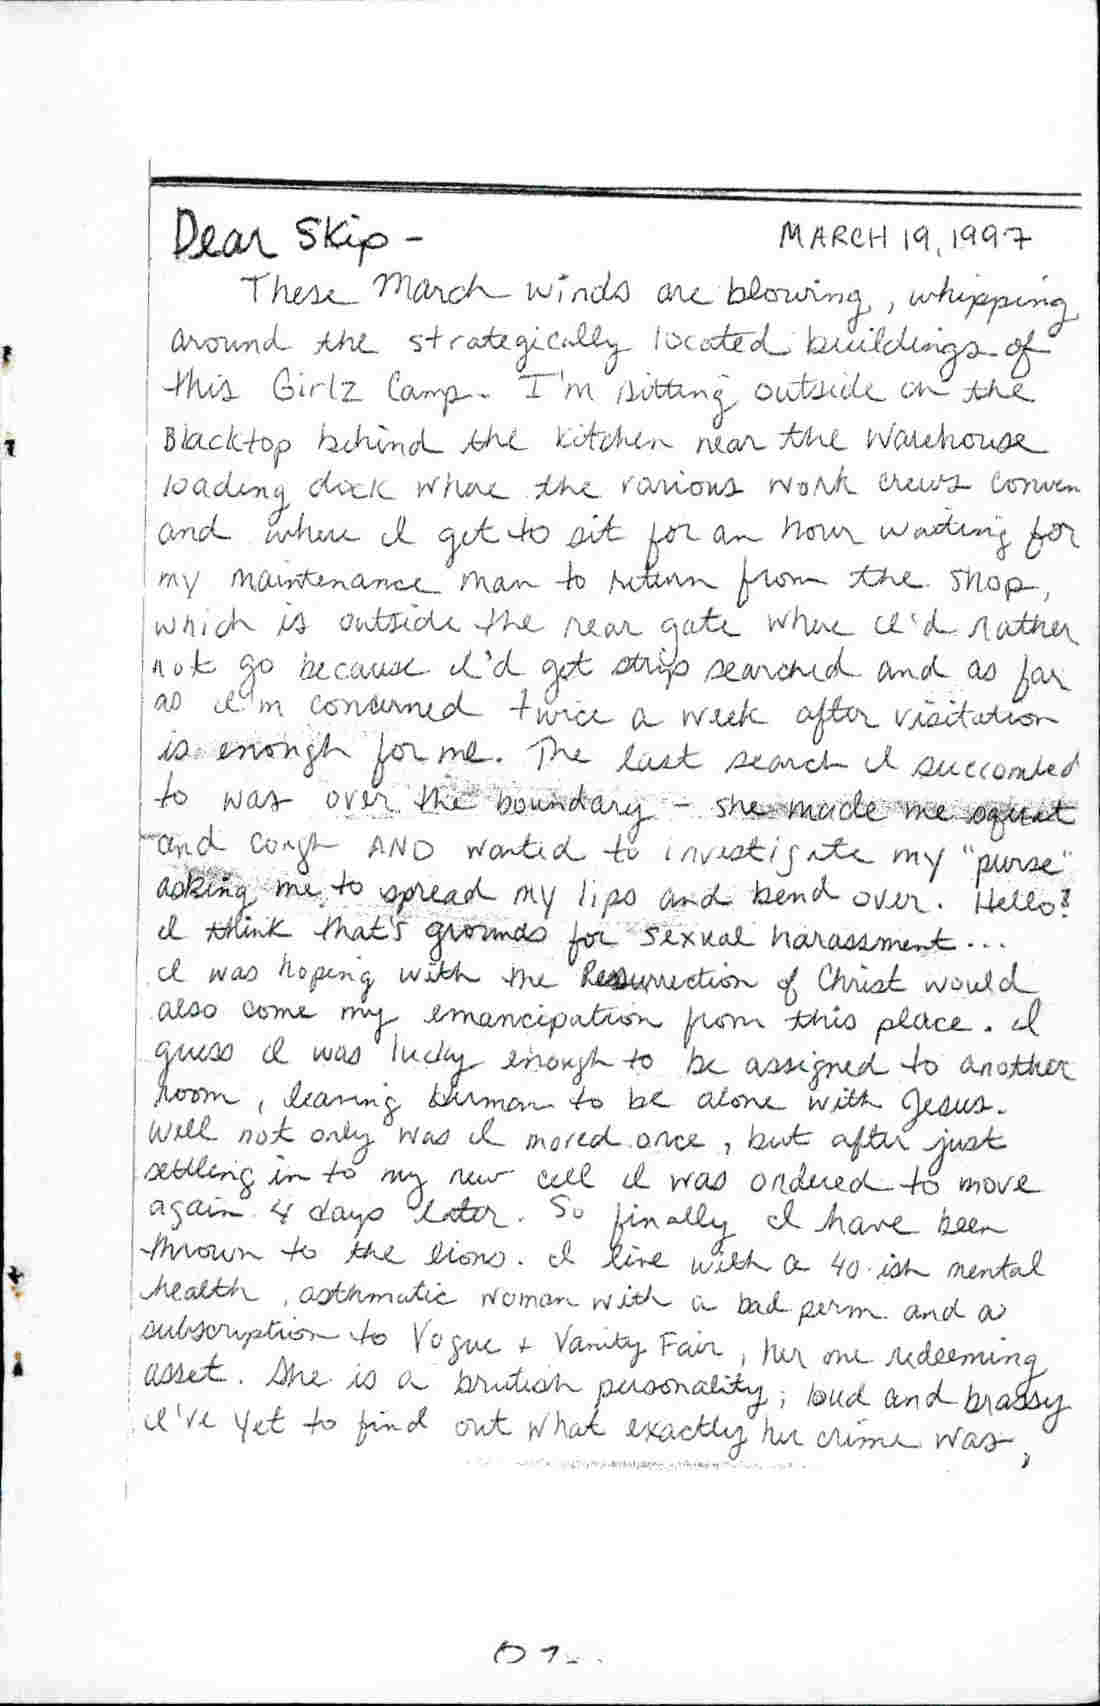 Dear Skip -
MARCH 19, 1997
These March winds are blowing, whipping
around the strategically located buildings of
this Girlz Camp. I'm sitting outside on the
Blacktop behind the kitchen near the Warehouse
loading dock where the various work crews conven
and where I get to sit for an hour waiting for
my maintenance man to return from the shop,
which is outside the rear gate where I'd rather
not go because I'd get strip searched and as far
as I'm concerned twice a week after visitation
is enough for me. The last search I succombed
to was over the boundary - she made me squat
and cough AND wanted to investigate my "purse"
asking me to spread my lips and bend over. Hello?
I think that's grounds for sexual harassment...
I was hoping with the Resurrection of Christ would
also come my emancipation from this place. I
guess I was lucky enough to be assigned to another
room, leaving to be alone with Jesus.
Well not only was I moved once, but after just
settling in to my new cell I was ordered to move
again 4 days later. So finally I have been
thrown to the lions. I live with a 40-ish mental
health, asthmatic woman with a bad perm and a
subscription to Vogue + Vanity Fair, her one redeeming
asset. She is a brutish personality; loud and brassy
I've yet to find out what exactly her crime was,